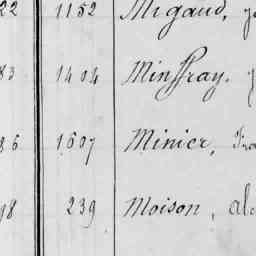 22 1152 Migaud,
83 1404 Minffray.
86 1607 Minier, Fra
98 239 Moison, Al